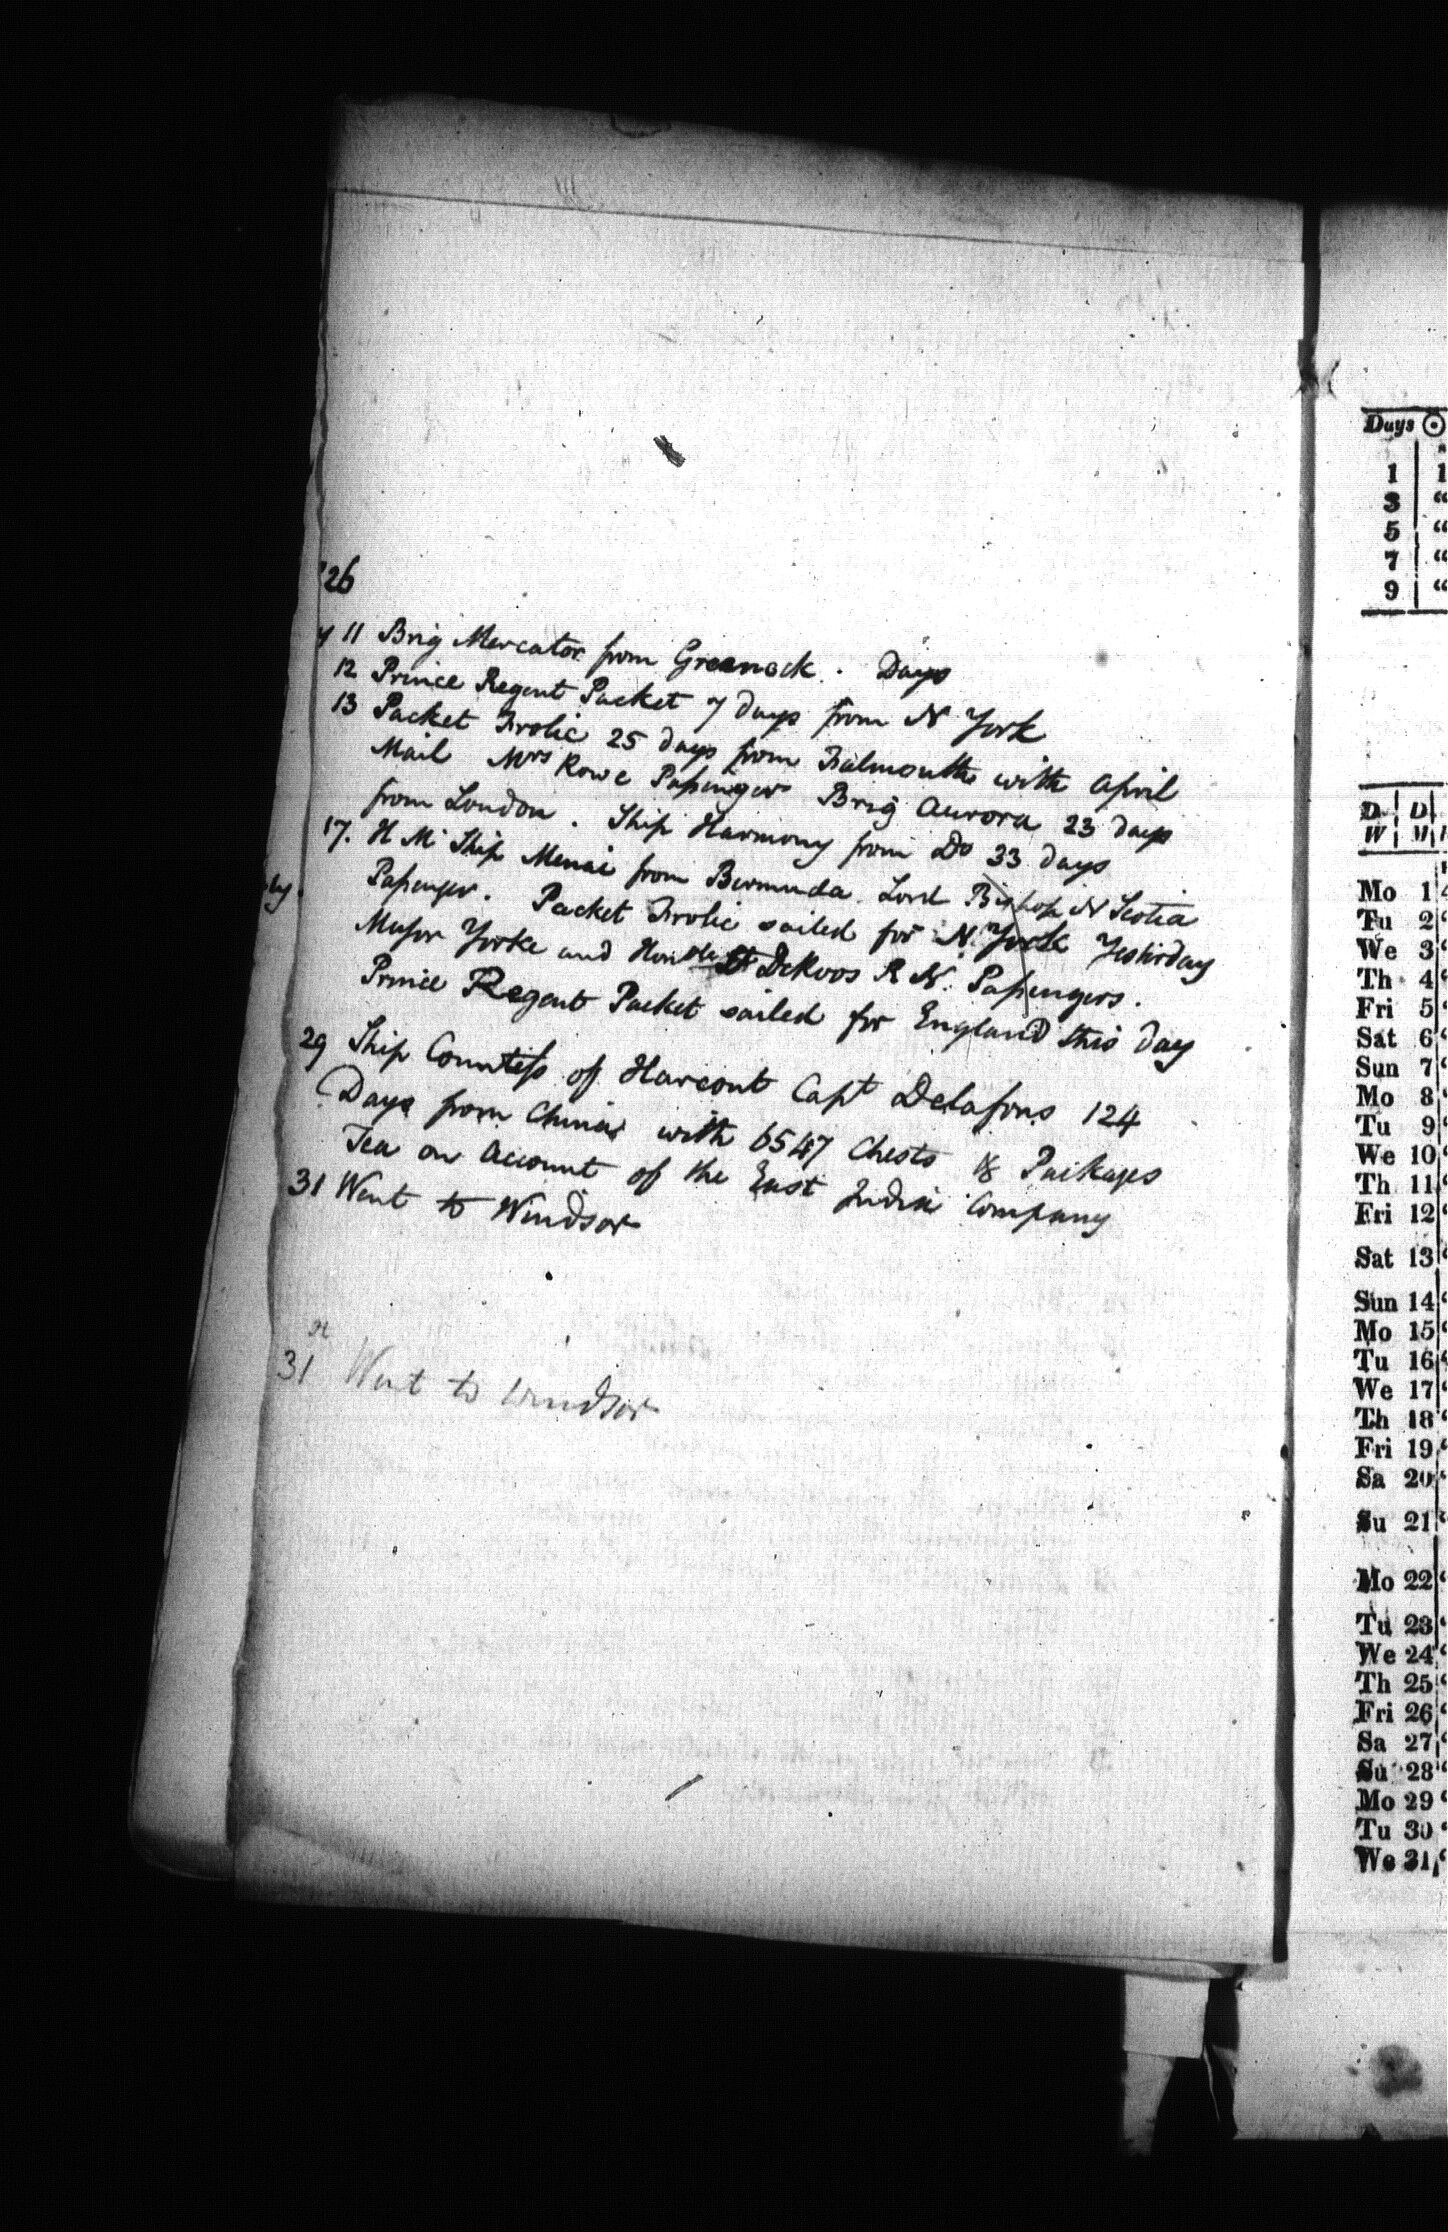 '26
y 11 Brig Mercator from Greenock. Days
12 Prince Regent Packet 7 days from N York
13 Packet Frolic 25 days from Falmouth with April
Mail Mrs Rowe Passenger Brig Aurora 23 days
from London. Ship Harmony from Do 33 days
17. H M Ship Menai from Bermuda. Lord Bishop N Scotia
Passenger. Packet Frolic sailed for N. York Yesterday
Major Yorke and Honble Lt DeRoos R N. Passengers.
Prince Regent Packet sailed for England this day
29 Ship Countess of Harcourt Capt Delafons 124
Days from China with 6547 Chests & Packages
Tea on account of the East India Company
31 Went to Windsor
31 Went to Windsor
by.
Days ☉
1 1
3 "
5 "
7 "
9 "
D. D.
W M
Mo 1
Tu 2
We 3
Th 4
Fri 5
Sat 6
Sun 7
Mo 8
Tu 9
We 10
Th 11
Fri 12
Sat 13
Sun 14
Mo 15
Tu 16
We 17
Th 18
Fri 19
Sa 20
Su 21
Mo 22
Tu 23
We 24
Th 25
Fri 26
Sa 27
Su 28
Mo 29
Tu 30
We 31